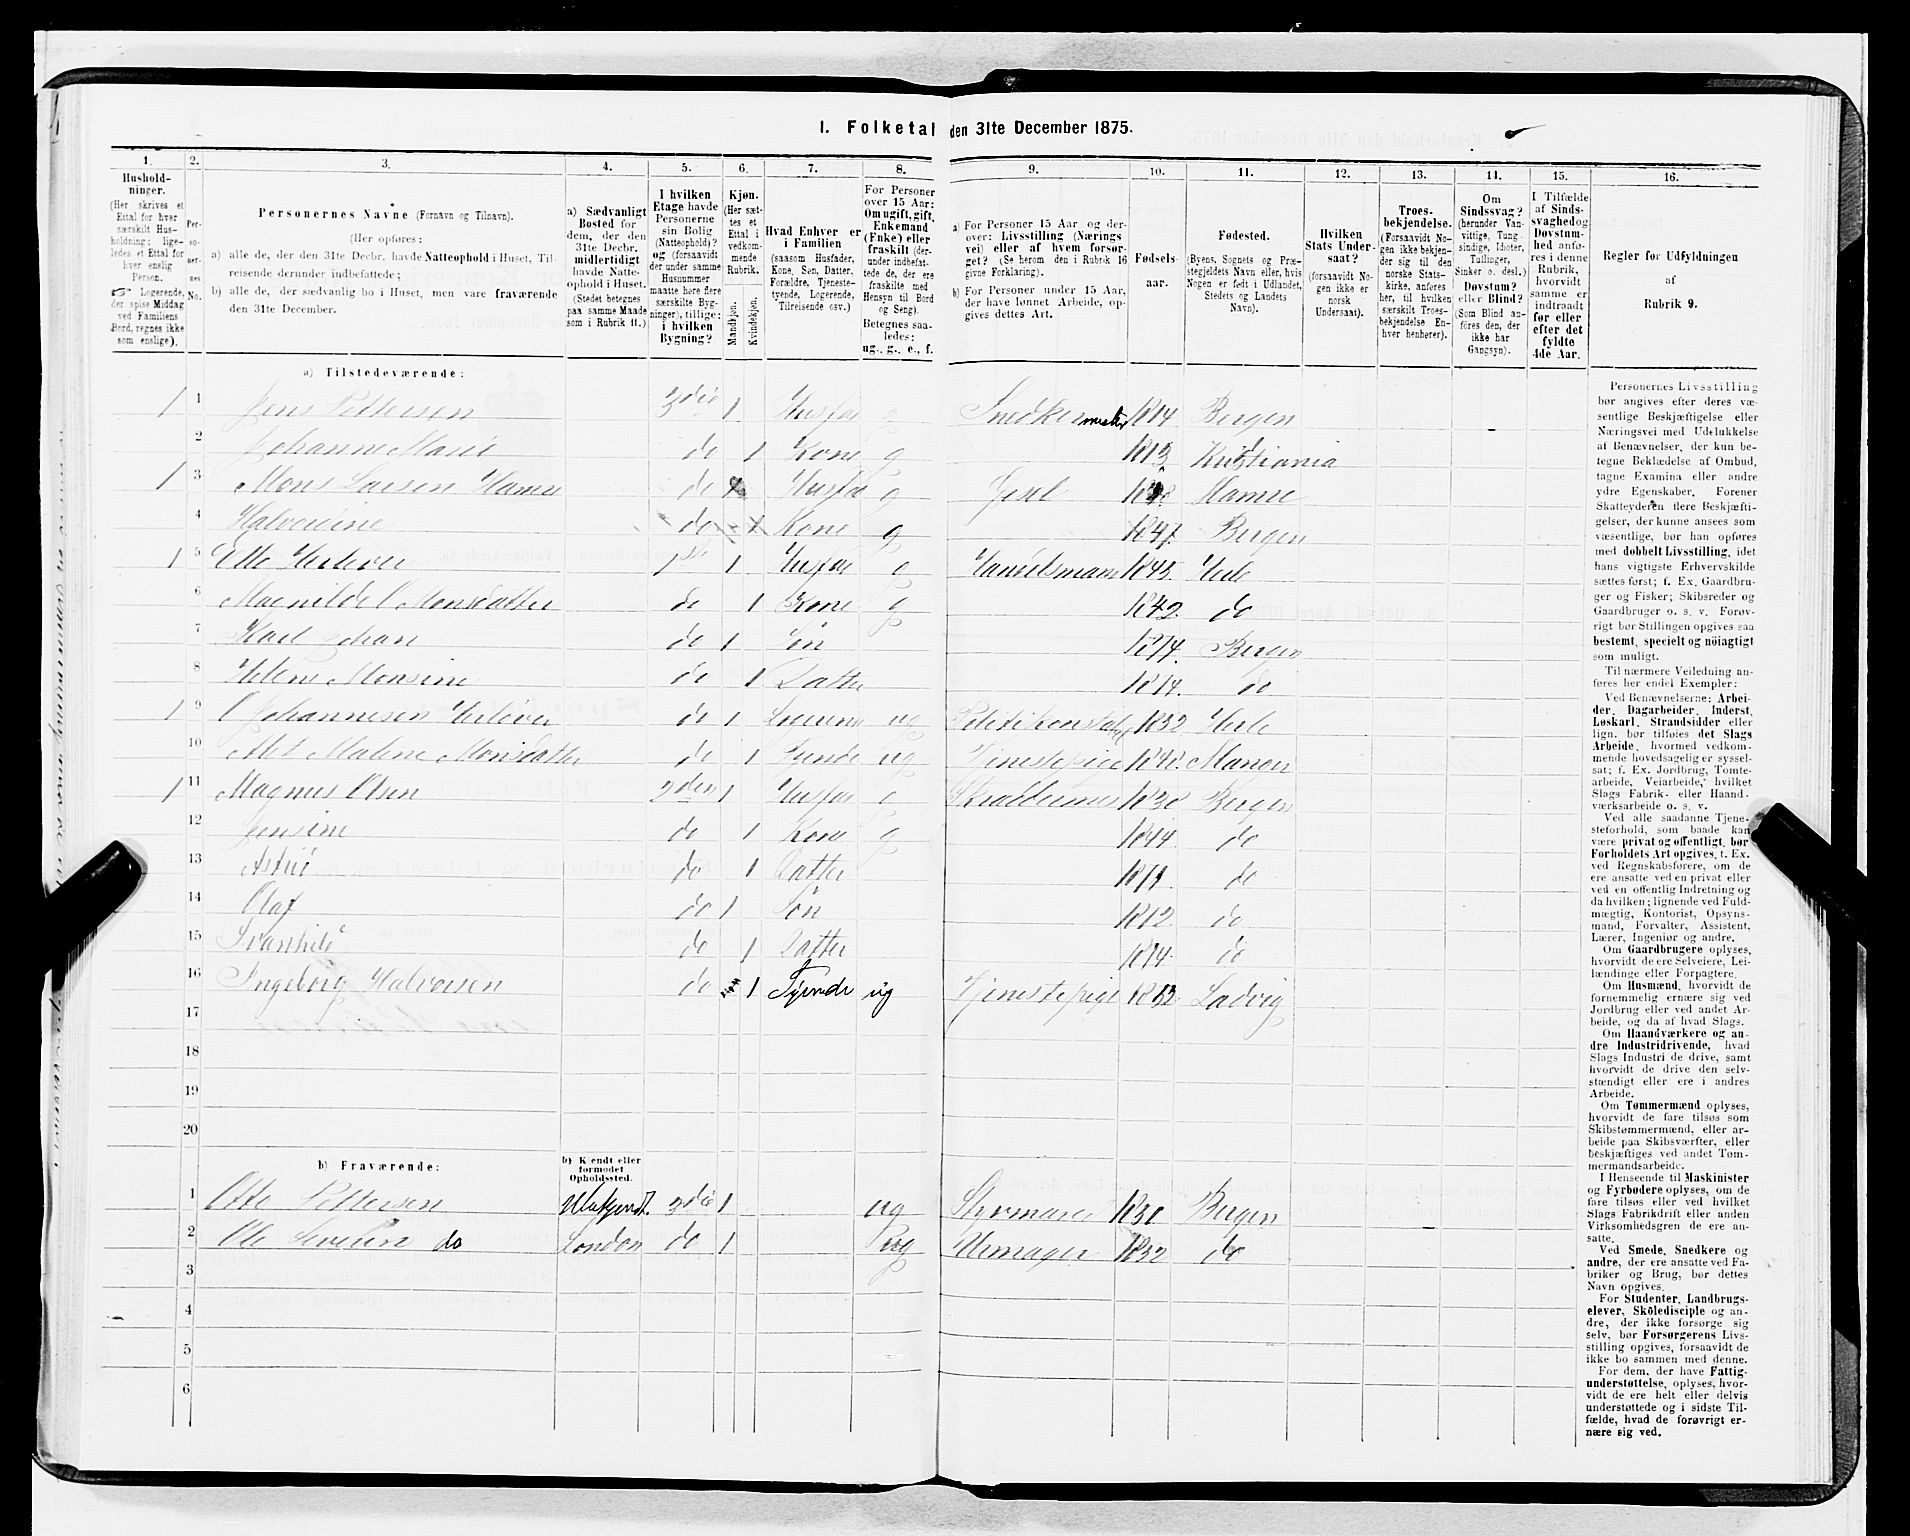 I. Folketal den 31te December 1875.
1. 2. 3. 4. 5. 6. 7. 8. 9. 10. 11. 12. 13. 14. 15. 16.
Hushold-
ninger.
(Her skrives et
Ettal for hver
særskilt Hus-
holdning; lige-
ledes et Ettal for
hver enslig
Person.
☞ Logerende,
der spise Middag
ved Familiens
Bord, regnes ikke
som enslige).
Per-
so-
ner-
nes
No.
Personernes Navne (Fornavn og Tilnavn).
(Her opføres:
a) alle de, der den 31te Decbr. havde Natteophold i Huset, Til-
reisende derunder indbefattede;
b) alle de, der sædvanlig bo i Huset, men vare fraværende
den 31te December.
a) Sædvanligt
Bosted for
dem, der den
31te Decbr.
midlertidigt
havde Natte-
ophold i Huset.
(Stedet betegnes
paa samme Maade
som i Rubrik 11.)
I hvilken
Etage havde
Personerne
sin Bolig
(Natteophold)?
og (forsaavidt
der under samme
Husnummer
maatte høre flere
særskilte Byg-
ninger), tillige:
i hvilken
Bygning?
Kjøn.
(Her sæt-
tes et
Ettal i
vedkom-
mende
Rubrik.
Mandkjøn.
Kvindekjøn.
Hvad Enhver er
i Familien
(saasom Husfader,
Kone, Søn, Datter,
Forældre, Tjeneste-
tyende, Logerende,
Tilreisende osv.)
For Personer
over 15 Aar:
Om ugift, gift,
Enkemand
(Enke) eller
fraskilt (der-
under indbefat-
tede de, der ere
fraskilte med
Hensyn til Bord
og Seng).
Betegnes saa-
ledes:
ug., g., e., f.
a) For Personer 15 Aar og der-
over: Livsstilling (Nærings
vei) eller af hvem forsør-
get? (Se herom den i Rubrik 16
givne Forklaring).
b) For Personer under 15 Aar,
der have lønnet Arbeide, op-
gives dettes Art.
Fødsels-
aar.
Fødested.
(Byens, Sognets og Præ-
stegjeldets Navn eller, hvis
Nogen er født i Udlandet,
Stedets og Landets
Navn).
Hvilken
Stats Under-
saat?
(forsaavidt No-
gen ikke er
norsk
Undersaat).
Troes-
bekjendelse.
(Forsaavidt No-
gen ikke bekjen-
der sig til den
norske Stats-
kirke, anføres
her, til hvilken
særskilt Troes-
bekjendelse En-
hver henhører).
Om
Sindssvag?
(herunder Van-
vittige, Tung-
sindige, Idioter,
Tullinger,
Sinker o. desl.)
Døvstum?
eller Blind?
(Som Blind an-
føres den, der
ikke har
Gangsyn).
I Tilfælde
af Sinds-
svaghed og
Døvstum-
hed anfø-
res i denne
Rubrik,
hvorvidt
samme er
indtraadt
før eller
efter det
fyldte
4de Aar.
Regler for Udfyldningen
af
Rubrik 9.
a) Tilstedeværende:
1 1 Jens Pettersen 3die 1 Husfar g Snedkermester 1814. Bergen
2 Johanne Marie do 1 Kone g 1813 Kristiania
1 3 Mons Larsen Hamre do Husfar g Hamre
4 do 1 Kone g 1847. Bergen
1 5 1ste 1 Husfar g Handelsmand 1845. Herlø
6 Magnilde Monsdatter do 1 Kone g 1842. do
7 Karl Johan do 1 Søn 1874. Bergen
8 Helene Monsine do 1 Datter 1874. do
1 9 Johannesen Herløver do 1 Logerende ug Politikonstabel 1852 Herlø
10 Malene Monsdatter do 1 Tyende ug Tjenestepige Manger
1 11 Magnus Olsen 2den 1 Husfar g Bergen
12 Jensine do 1 Kone g 1844 do
13 do 1 Datter 1871. do
14 Olaf do 1 Søn 1872. do
15 Svanhild do 1 Datter 1874. do
16 Ingeborg Halvorsen do 1 Tyende ug Tjenestepige Ladvig
17
18
19
20
b) Fraværende:
b) Kjendt eller
formodet
Opholdssted.
1 Otto Pettersen Ubekjendt. 3die 1 ug Styrmand 1850 Bergen
2 Ole Severin do London do 1 ug Urmager 1852 do
3
4
5
6
Personernes Livsstilling
bør angives efter deres væ-
sentlige Beskjæftigelse eller
Næringsvei med Udelukkelse
af Benævnelser, der kun be-
tegne Beklædelse af Ombud,
tagne Examina eller andre
ydre Egenskaber. Forener
Skatteyderen flere Beskjæfti-
gelser, der kunne ansees som
væsentlige, bør han opføres
med dobbelt Livsstilling, idet
hans vigtigste Erhvervskilde
sættes først; f. Ex. Gaardbru-
ger og Fisker; Skibsreder og
Gaardbruger o. s. v. Forøv-
rigt bør Stillingen opgives saa
bestemt, specielt og nöiagtigt
som muligt.
Til nærmere Veiledning an-
føres her endel Exempler:
Ved Benævnelserne: Arbei-
der, Dagarbeider, Inderst,
Løskarl, Strandsidder eller
lign. bør tilføies det Slags
Arbeide, hvormed vedkom-
mende hovedsagelig er syssel-
sat; f. Ex. Jordbrug, Tomte-
arbeide, Veiarbeide, hvilket
Slags Fabrik- eller Haand-
værksarbeide o. s. v.
Ved alle saadanne Tjene-
steforhold, som baade kan
være privat og offentligt, bør
Forholdets Art opgives, t. Ex.
ved Regnskabsførere, om de
ere ansatte ved en privat eller
ved en offentlig Indretning og
da hvilken; lignende ved Fuld-
mægtig, Kontorist, Opsyns-
mand, Forvalter, Assistent,
Lærer, Ingeniør og andre.
Om Gaardbrugere oplyses,
hvorvidt de ere Selveiere, Lei-
lændinge eller Forpagtere.
Om Husmænd, hvorvidt de
fornemmelig ernære sig ved
Jordbrug eller ved andet Ar-
beide, og da af hvad Slags.
Om Haandværkere og an-
dre Industridrivende, hvad
Slags Industri de drive, samt
hvorvidt de drive den selv-
stændigt eller ere i andres
Arbeide.
Om Tømmermænd oplyses,
hvorvidt de fare tilsøs som
Skibstømmermænd, eller ar-
beide paa Skibsværfter, eller
beskjæftiges ved andet Tøm-
mermandsarbeide.
I Henseende til Maskinister
og Fyrbødere oplyses, om de
fare tilsøs eller ved hvilket
Slags Fabrikdrift eller anden
Virksomhedsgren de ere an-
satte.
Ved Smede, Snedkere og
andre, der ere ansatte ved Fa-
briker og Brug, bør dettes
Navn opgives.
For Studenter, Landbrugs-
elever, Skoledisciple og an-
dre, der ikke forsørge sig
selv, bør Forsørgerens Livs-
stilling opgives, forsaavidt de
ikke bo sammen med denne.
For dem, der have Fattig-
understøttelse, oplyses, hvor-
vidt de ere helt eller delvis
understøttede og i sidste Til-
fælde, hvad de forøvrigt er-
nære sig ved.